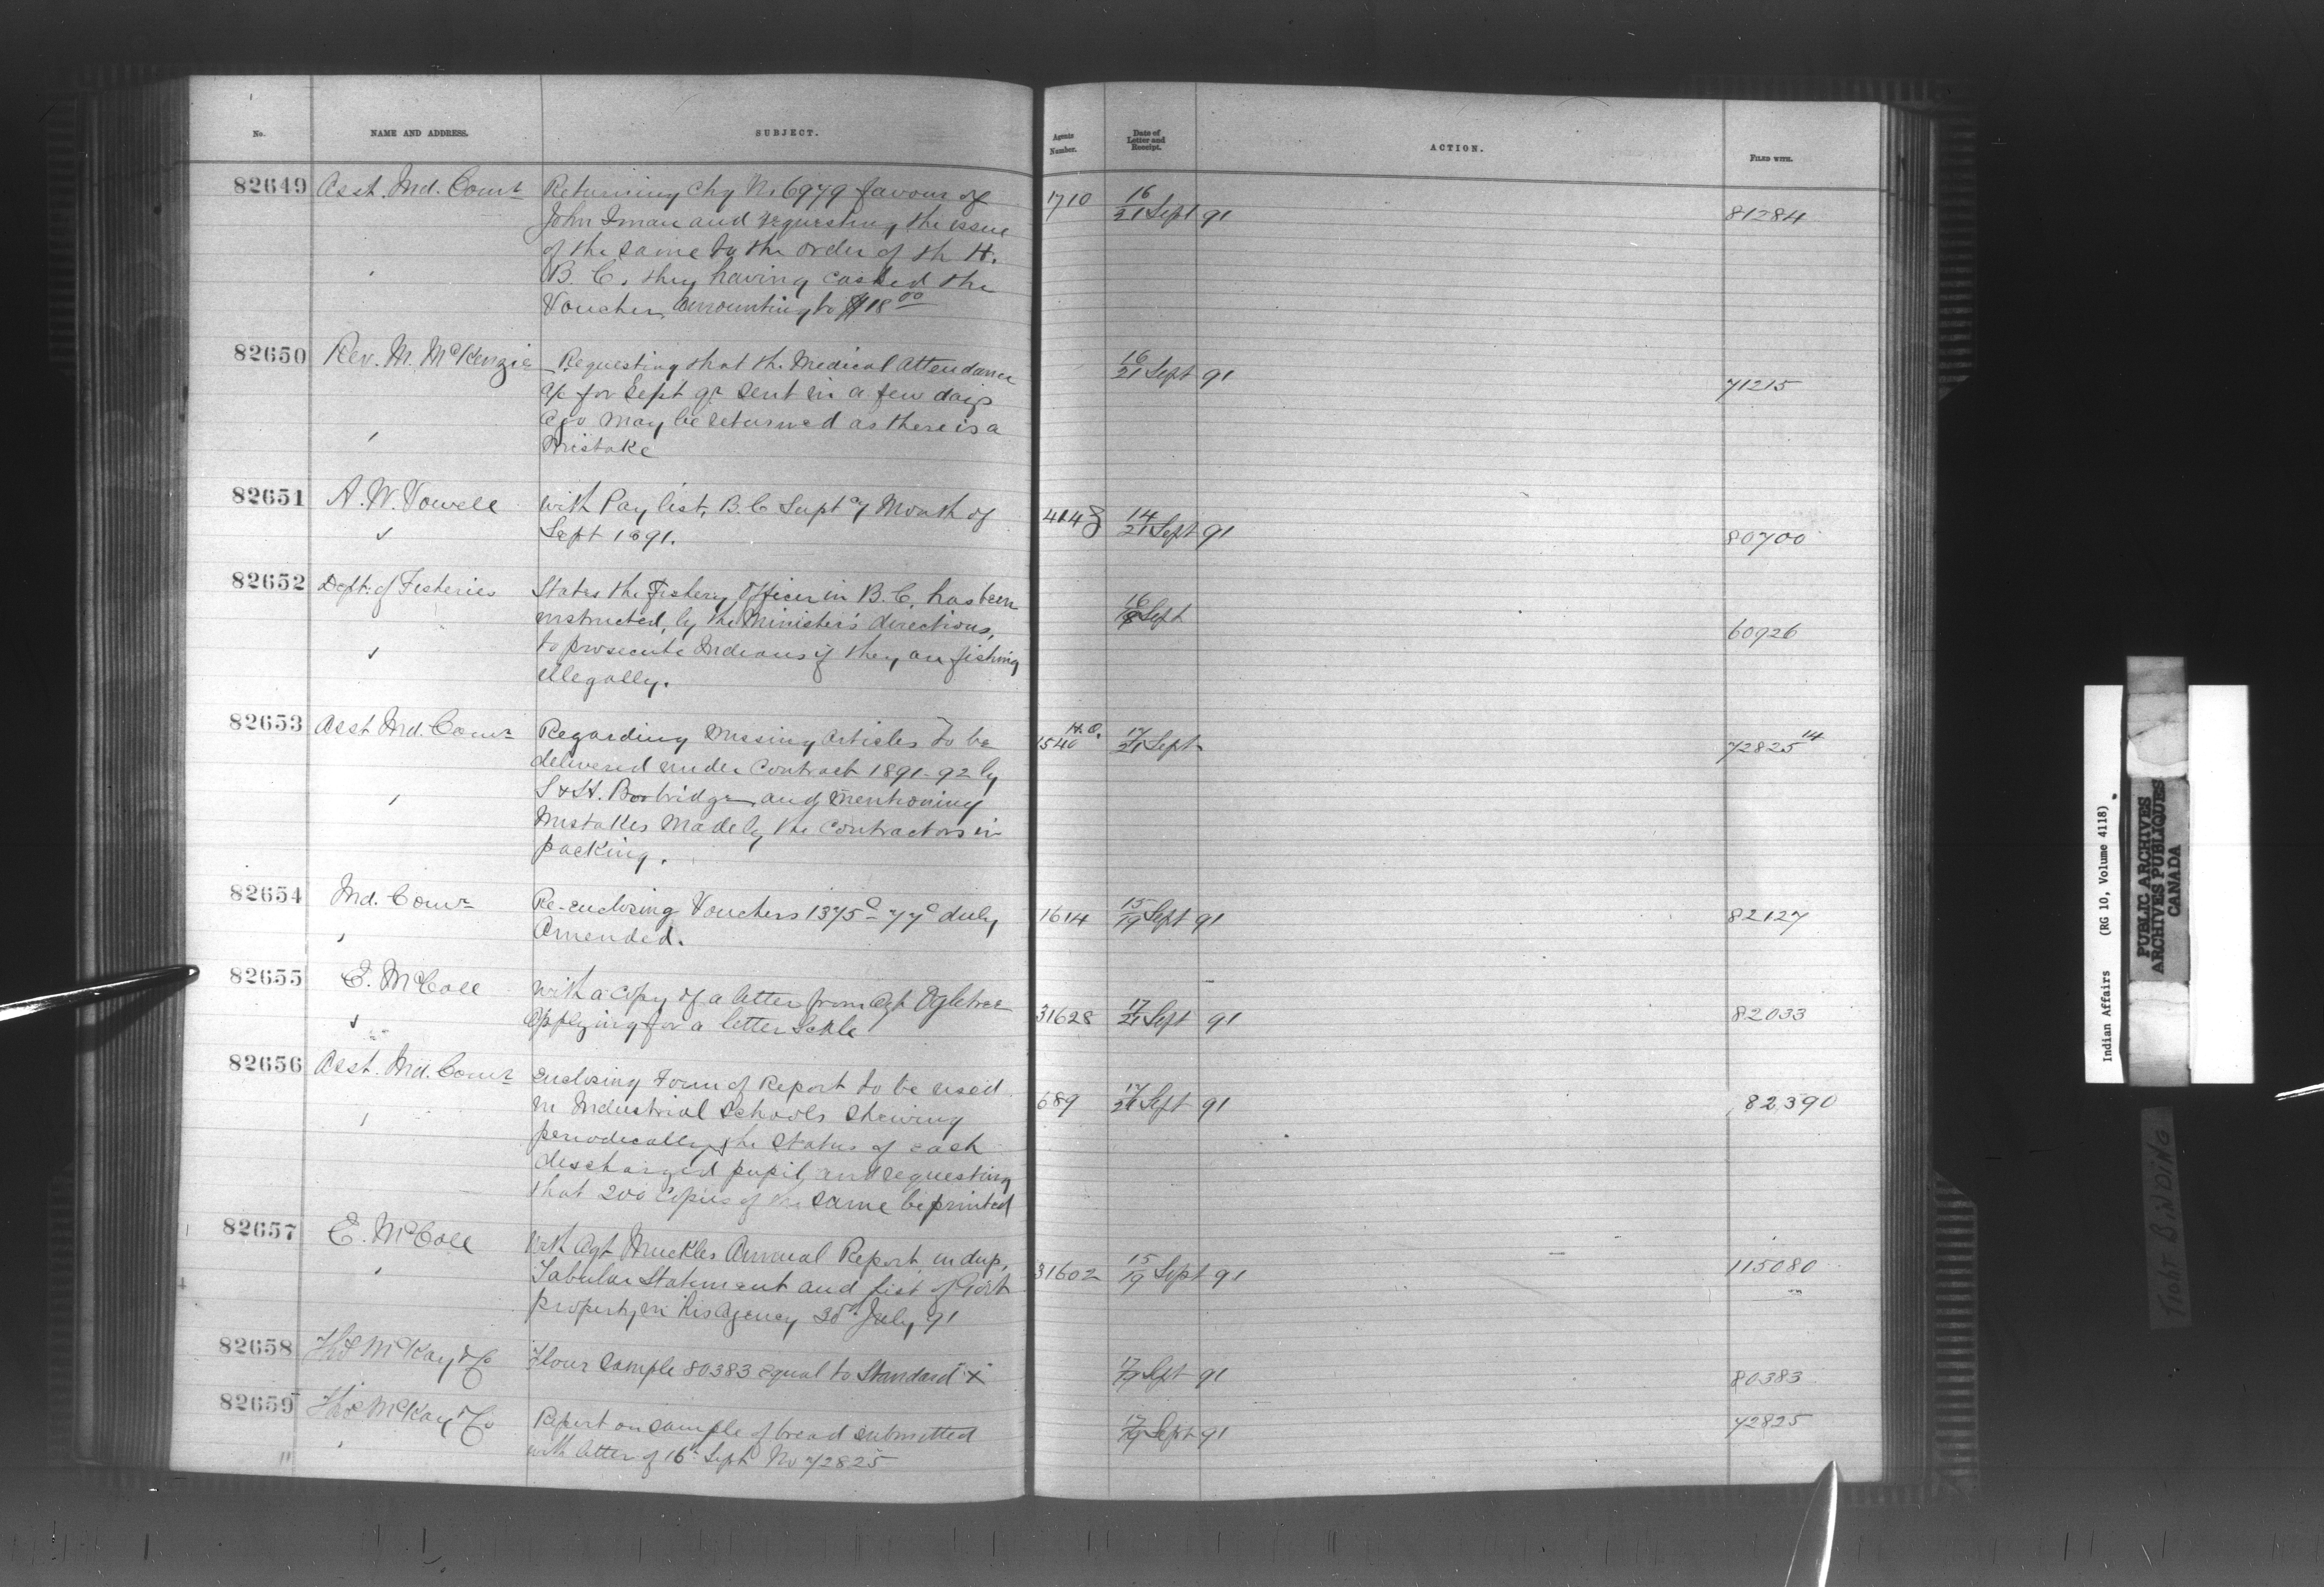 No. NAME AND ADDRESS. SUBJECT. Agents Number. Date of Letter and Receipt. ACTION. FILED WITH.
82649 Asst. Ind. Comr Returning Chq No 6979 favour of 1710 16/21 Sept 91 81284
John Inman and requesting the issue
of the same to the order of the H.
B. C. they having cashed the
Voucher amounting to $18.00
82650 Rev. M. McKenzie Requesting that the Medical Attendance 16/21 Sept 91 71215
a/c for Sept qr sent in a few days
ago may be returned as there is a
mistake
82651 A. W. Vowell with Pay list, B.C Supty Month of 414 14/21 Sept 91 80700
Sept 1891.
82652 Dept. of Fisheries States the Fishery Officer in B. C. has been 16/ Sept 60926
instructed, by the Minister's directions,
to prosecute Indians if they are fishing
illegally.
82653 Asst Ind. Comr Regarding missing articles to be 1540 H.O. 17/21 Sept 72825 14
delivered under Contract 1891-92 by
S & H. Borbridge and mentioning
mistakes made by the Contractors in
packing.
82654 Ind. Comr Re-enclosing Vouchers 1375c - 77c duly 1614 15/19 Sept 91 82127
Amended.
82655 E. McColl with a copy of a letter from Agt Ogletree 31628 17/21 Sept 91 82033
applying for a letter Scale
82656 Asst. Ind. Comr enclosing Form of Report to be used 689 17/21 Sept 91 82390
in Industrial Schools shewing
periodically the status of each
discharged pupil, and requesting
that 200 copies of the same be printed
82657 E. McColl With Agt Muckles Annual Report, in dup, 31602 15/19 Sept 91 115080
Tabular Statement and List of Govt
property in his Agency 30th July 91
82658 Thos McKay & Co Flour Sample 80383 equal to Standard "X" 17/19 Sept 91 80383
82659 Thos McKay & Co Report on sample of bread submitted 17/19 Sept 91 72825
with letter of 16th Sept No 72825
Indian Affairs (RG 10, Volume 4118)
PUBLIC ARCHIVES
ARCHIVES PUBLIQUES
CANADA
TIGHT BINDING